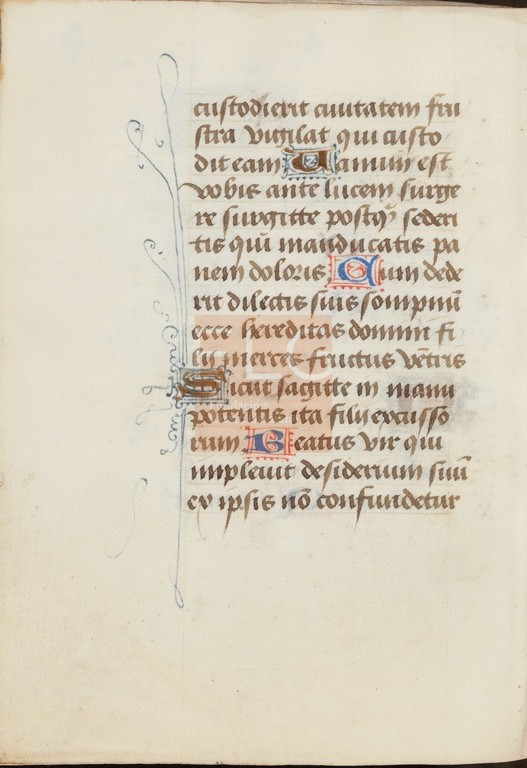 custodierit ciuitatem fru
stra vigilat qui custo
dit eam Uanum est
vobis ante lucem surge
re surgitte postq̃ sederi
tis qui manducatis pa
nem doloris Cum dede
rit dilectis suis sompnũ
ecce hereditas domini fi
lij merces fructus vẽtris
Sicut sagitte in manu
potentis ita filij excusso
rum Beatus vir qui
impleuit desiderium suũ
ex ipsis nõ confundetur